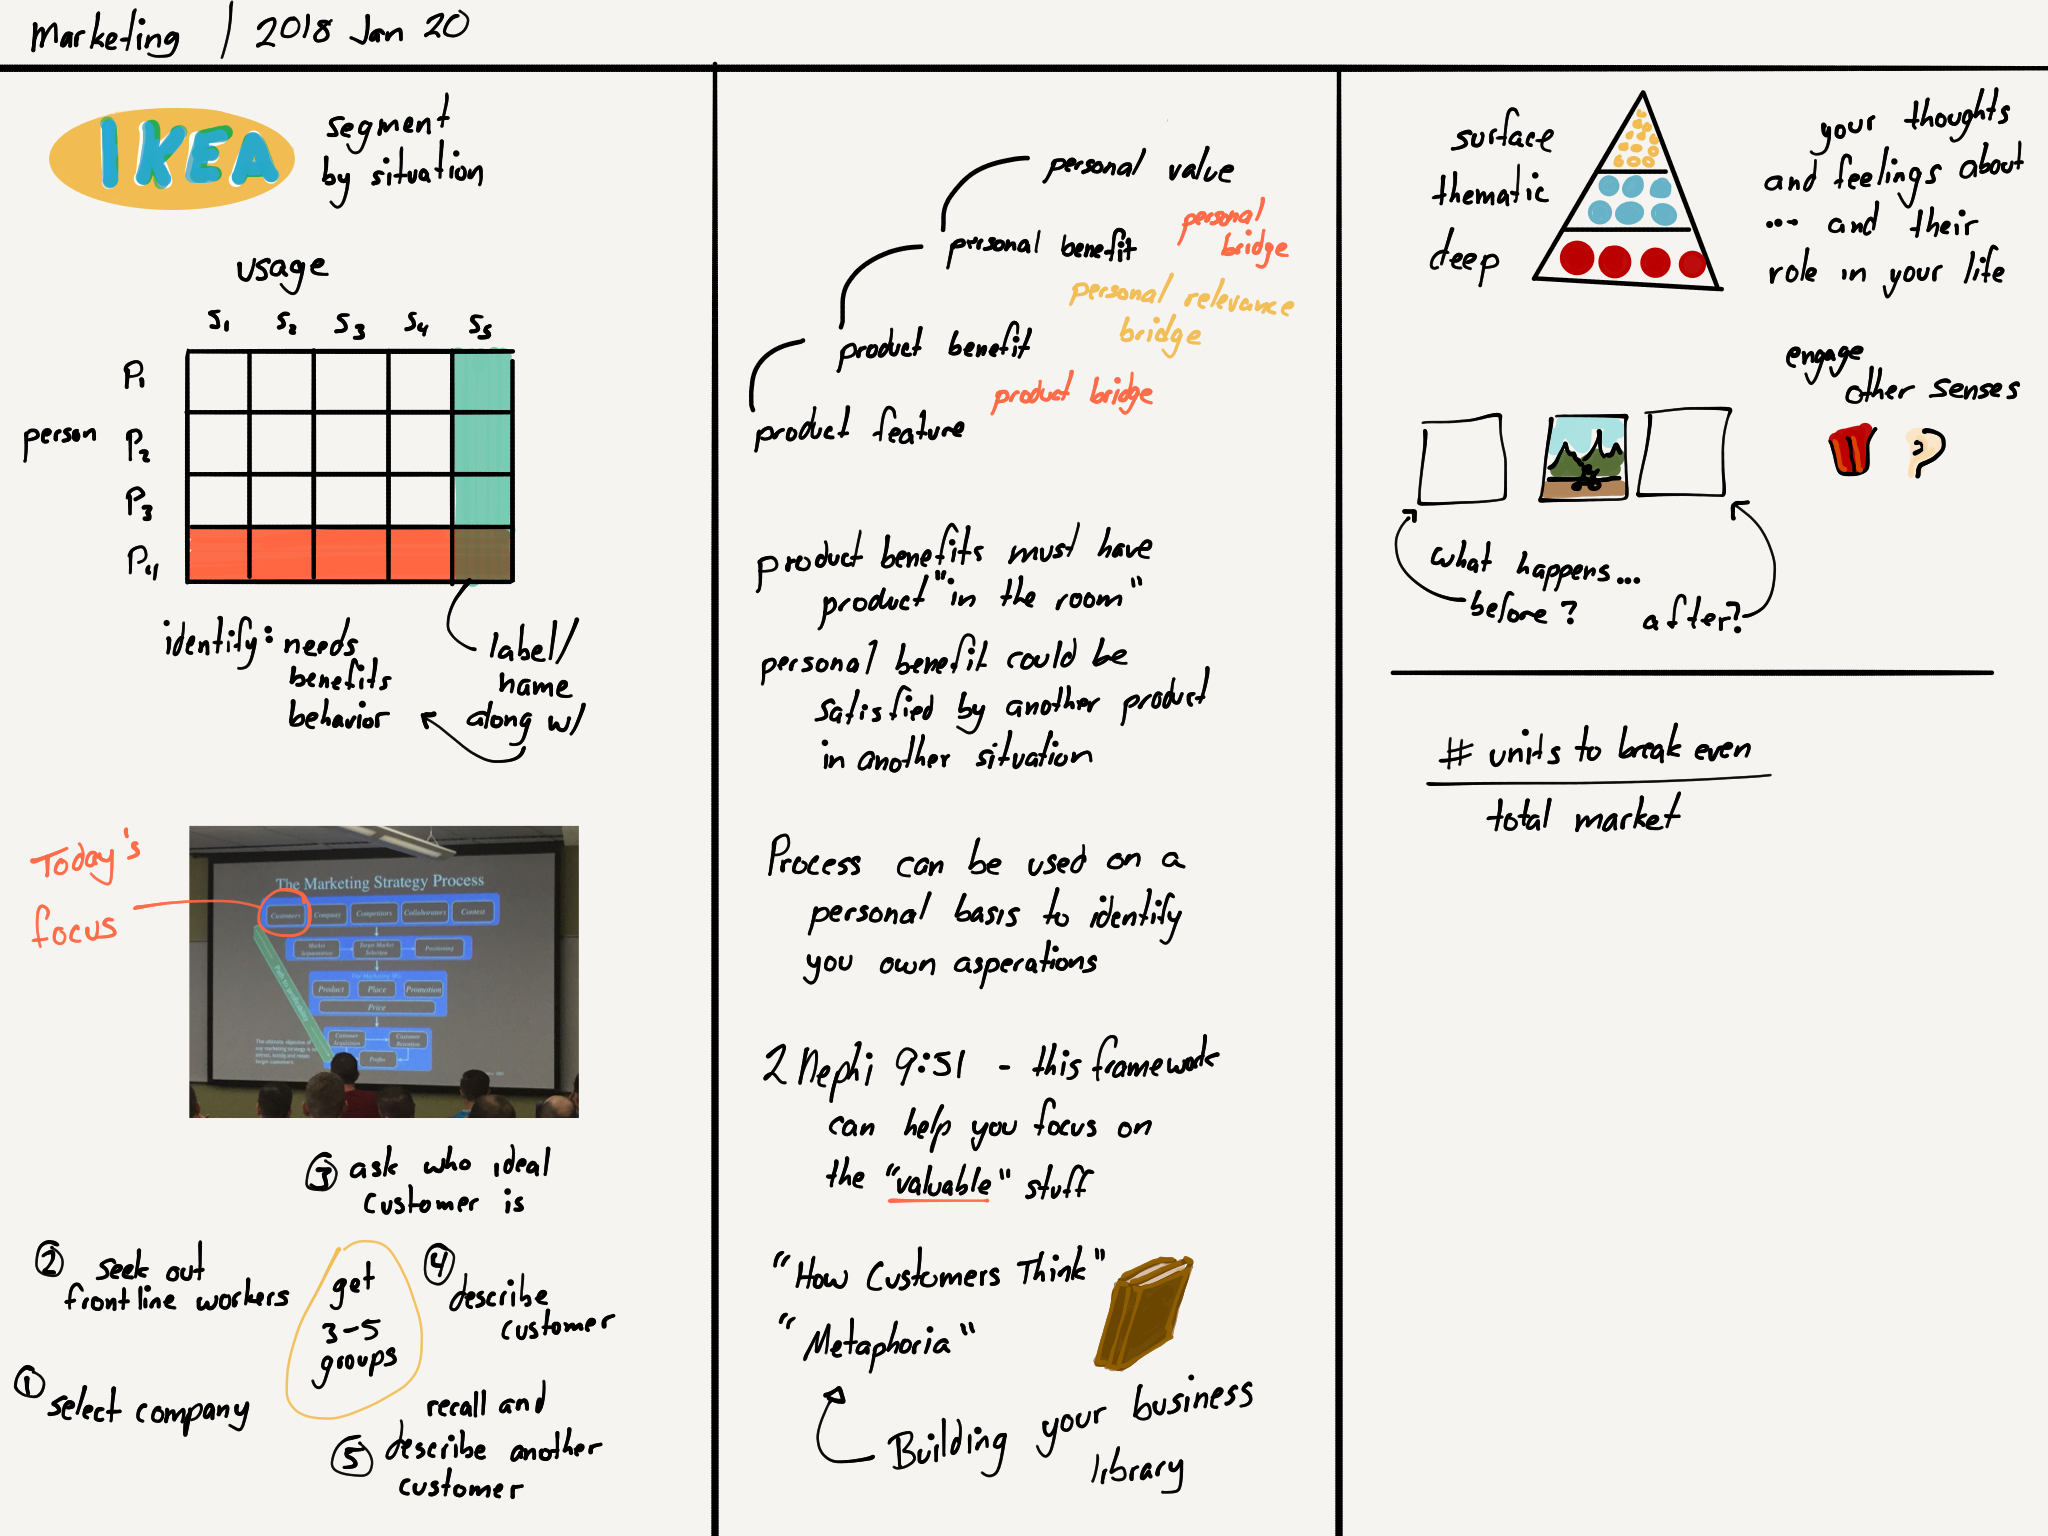 Marketing / 2018 Jan 20
IKEA
segment
by situation
usage
S1 S2 S3 S4 S5
person
P1
P2
P3
P4
identify: needs
benefits
behavior
label/
name
along w/
Today's
focus
The Marketing Strategy Process
Customers Company Competitors Collaborators Context
Market Segmentation Target Market Selection Positioning
Product Place Promotion
Price
Customer Acquisition Customer Retention
Profits
Path to profitability
3 ask who ideal
customer is
2 seek out
front line workers
get
3-5
groups
4 describe
customer
1 select company
recall and
5 describe another
customer
personal value
personal
bridge
personal benefit
personal relevance
bridge
product benefit
product bridge
product feature
product benefits must have
product "in the room"
personal benefit could be
satisfied by another product
in another situation
Process can be used on a
personal basis to identify
you own asperations
2 Nephi 9:51 - this framework
can help you focus on
the "valuable" stuff
"How Customers Think"
"Metaphoria"
Building your business
library
surface
thematic
deep
your thoughts
and feelings about
... and their
role in your life
engage
other senses
what happens...
before?
after?
# units to break even
total market